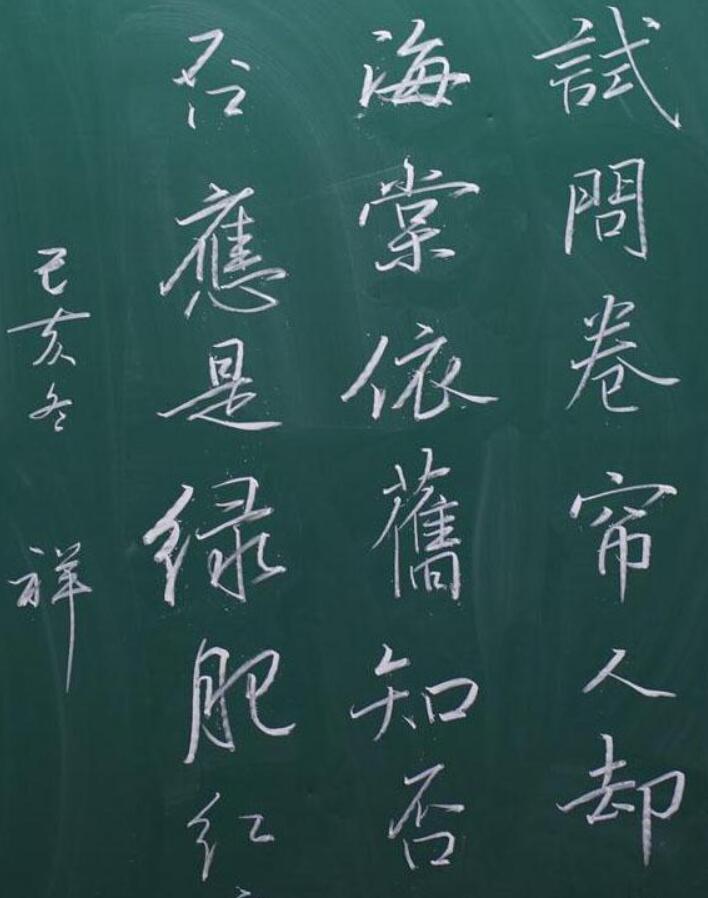 試問卷帘人却
海棠依舊知否
否應是绿肥红
己亥冬 祥